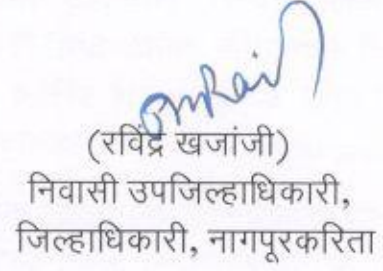 (रविंद्र खजांजी)
निवासी उपजिल्हाधिकारी,
जिल्हाधिकारी, नागपूरकरिता